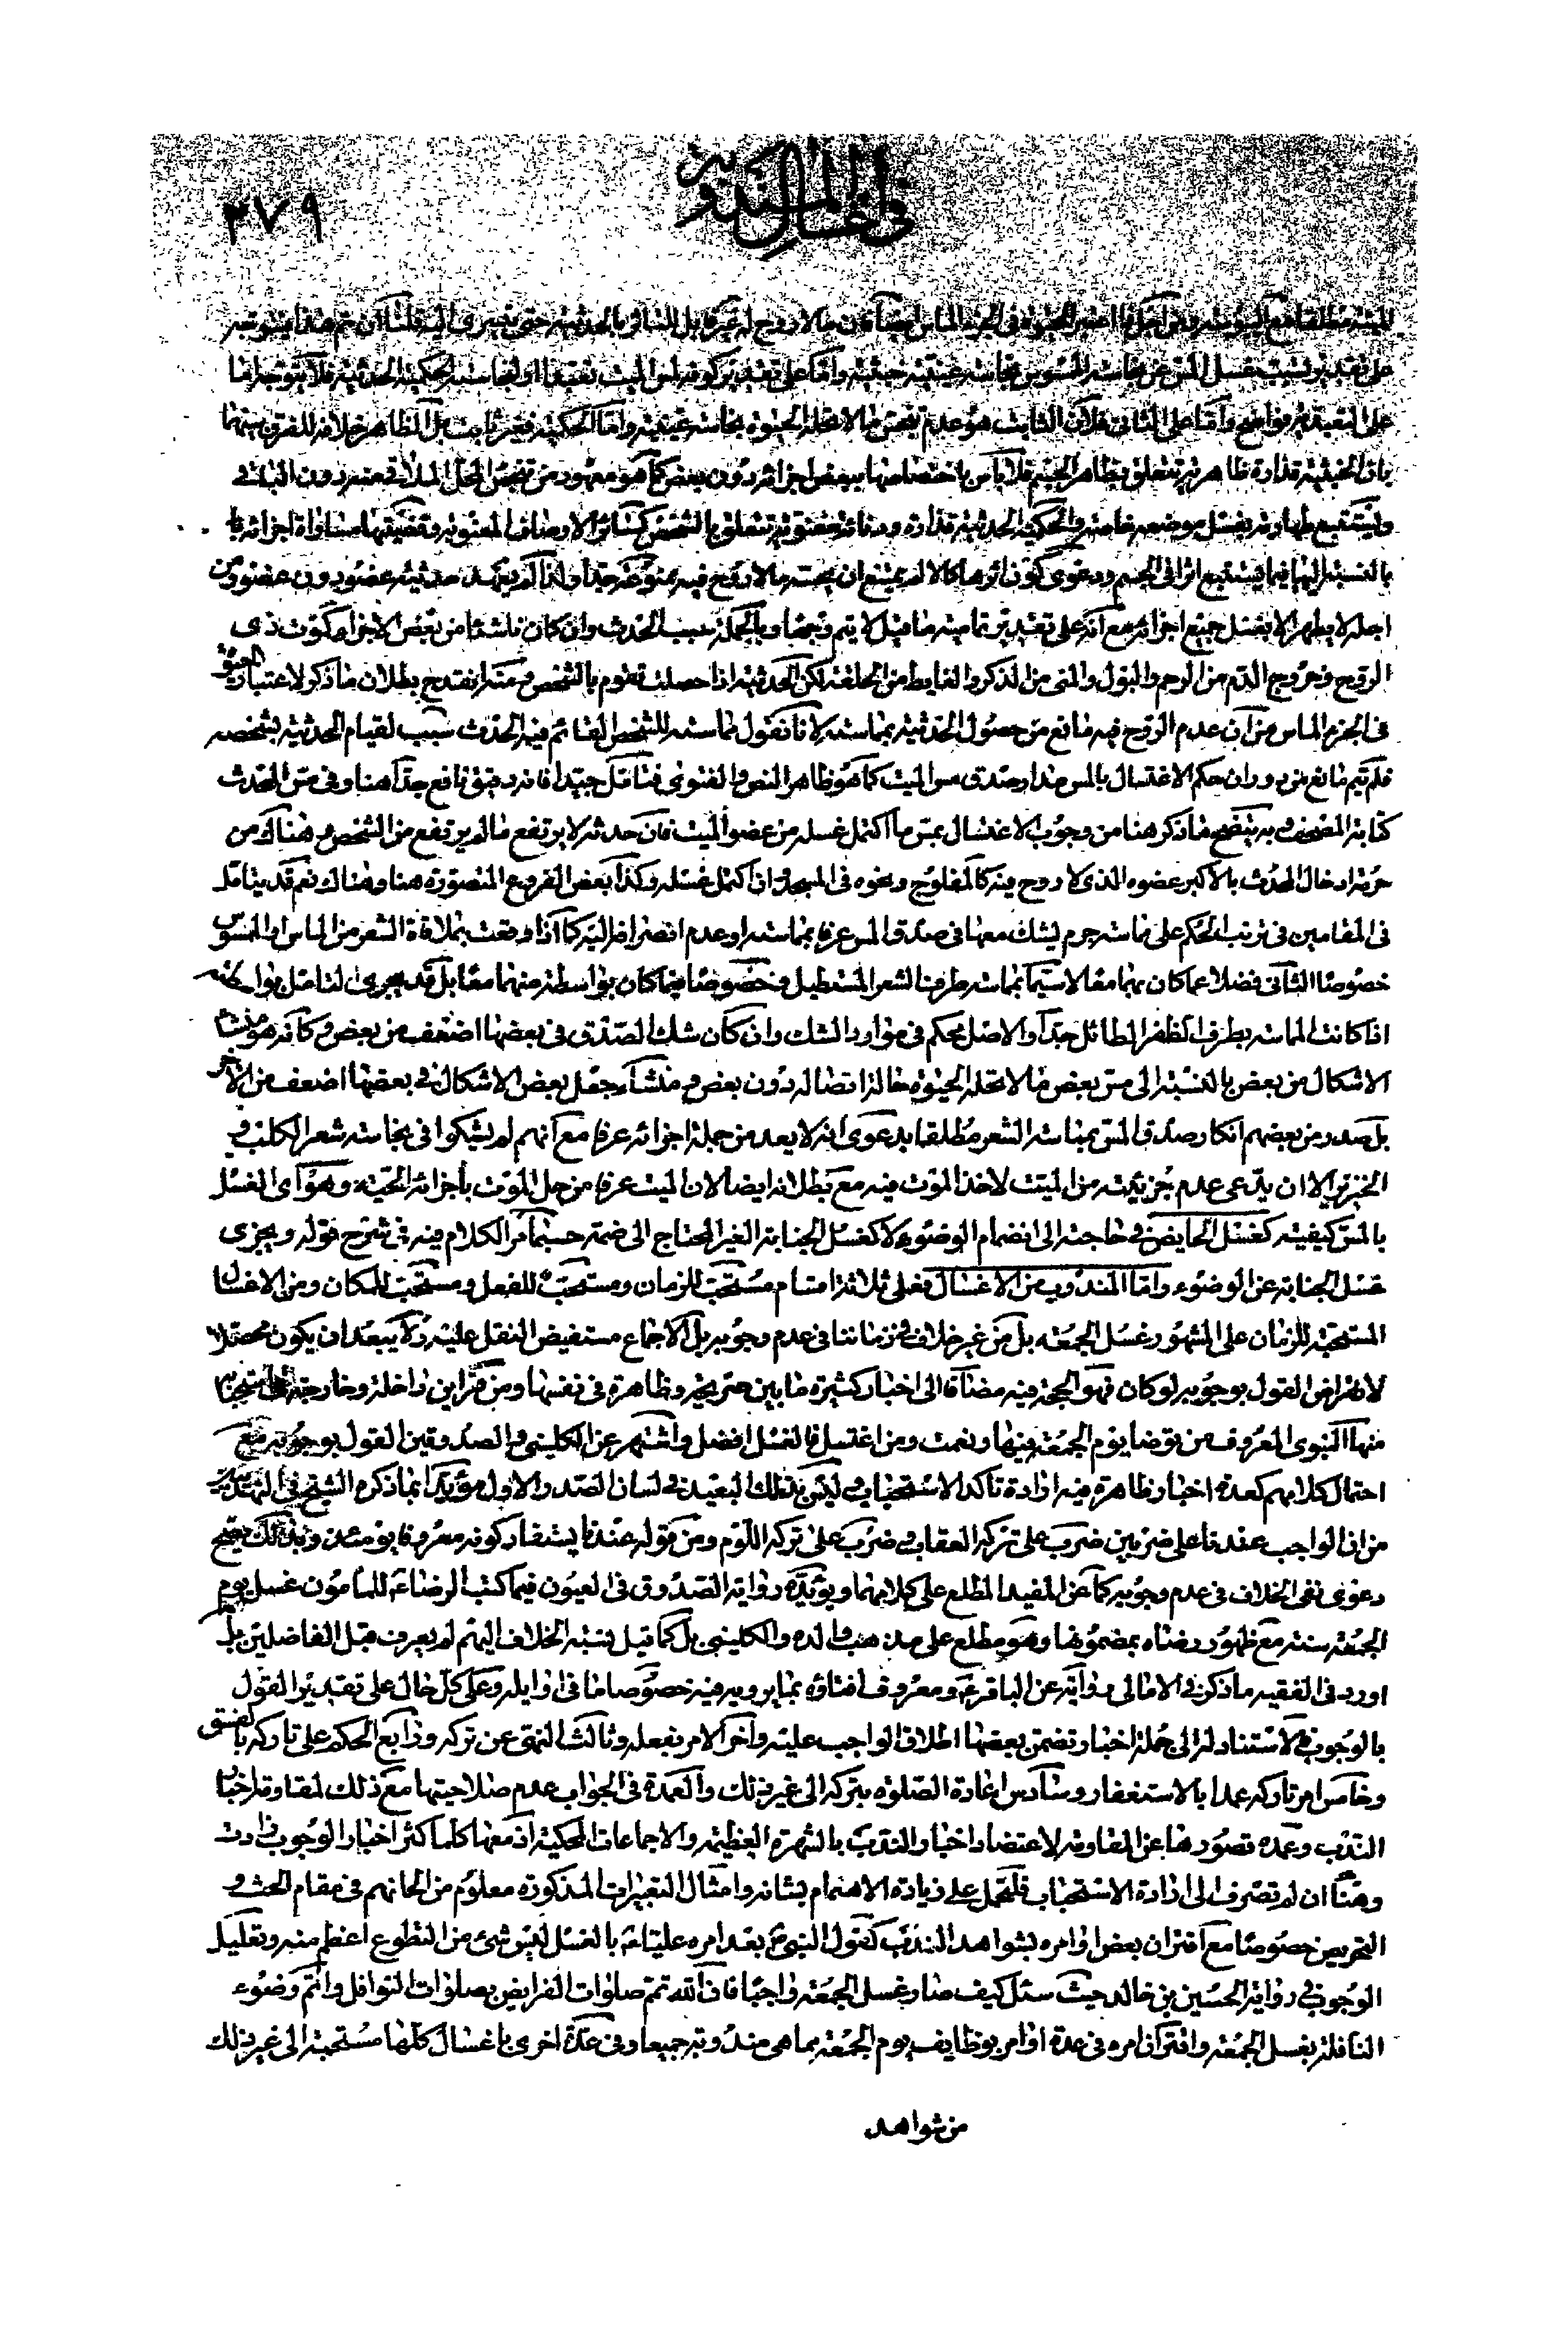 في الاغسال المندوبة
٣٧٩
الميتة مطلقا مع اليبوسة ومن اجل ذا اعتبر الحيوة في الجزء الماس ايضا لان ما لا روح له غير قابل للتاثر بالحدثية حتى يسرى اليه قلنا ان تم هذا فيتوجه
على تقدير تسبيب غسل المس عن نجاسة الممسوس نجاسة عينية خبثية واما على تقدير كونه لمس الميت تعبدا او لنجاسته الحكمية الحدثية فلا يتوجه اما
على التعبد فواضح واما على الثاني فلان الثابت هو عدم تنجس ما لا تحله الحيوة نجاسة عينية واما الحكمية فغير ثابت بل الظاهر خلافه للفرق بينهما
بان الخبثية قذارة ظاهرية تتعلق بظاهر الجسم فلا باس باختصاصها ببعض اجزائه دون بعض كما هو معهود من تنجس المحل الملاقي منه دون الباقي
وليستتبع طهارته بغسل موضعه خاصة والحكمية الحدثية قذارة معنوية تتعلق بالشخص كسائر الاوصاف المعنوية وقضيتها مساواة اجزائه
بالنسبة اليها فيما يستتبع اثرا في الجسم ودعوى كون اثرها كالالم يمتنع ان يحسه ما لا روح فيه ممنوعة جدا ولذا لم يعهد حدثية عضو دون عضو ومن
اجله لا يطهر الا بغسل جميع اجزائه مع انه على تقدير تمامية ما قيل لا يتم وجها وبالجملة سبب الحدث وان كان ناشئا من بعض الاجزاء كموت ذي
الروح وخروج الدم من الرحم والبول والمني من الذكر والغايط من الحلقة لكن الحدثية اذا حصلت تقوم بالشخص ومنه انقدح بطلان ما ذكر لاعتبار الحيوة
في الجزء الماس من ان عدم الروح فيه مانع من حصول الحدثية بمماسته لانا نقول مماسته للشخص القائم فيه الحدث سبب لقيام الحدثية بشخصه
فلم يتم مانع من دوران حكم الاغتسال بالمس مدار صدق مس الميت كما هو ظاهر النص والفتوى فتامل جيدا فانه دقيق نافع جدا هنا وفي مس المحدث
كتابة المصحف وبه يتضح ما ذكر هنا من وجوب الاغتسال بمس ما اكتمل غسله من عضو الميت فان حدثه لا يرتفع ما لم يرتفع من الشخص وهناك من
حرمة ادخال المحدث بالاكبر عضوه الذي لا روح فيه كالمفلوج ونحوه في المسجد وان اكتمل غسله وكذا بعض الفروع المتصورة هنا وهناك نعم قد يتامل
في المقامين في ترتب الحكم على مماسة جرم يشك معها في صدق المس عرفا بمماسته او عدم انصراف اليه كما اذا وقعت بملاقاة الشعر من الماس او الممسوس
خصوصا الثاني فضلا عما كان بهما معا لا سيما بمماسة طرف الشعر المستطيل وخصوصا فيما كان بواسطة منهما معا بل قد يجرى التامل
اذا كانت المماسة بطرف الظفر الطائل جدا والاصل محكم في موارد الشك وان كان شك الصدق في بعضها اضعف من بعض وكانه هو منشا
الاشكال من بعض بالنسبة الى مس بعض ما لا تحله الحيوة حال اتصاله دون بعض ومنشأ جعل بعض الاشكال في بعضها اضعف من الاخر
بل صدر من بعضهم انكار صدق المس بمماسة الشعر مطلقا بدعوى انه لا يعد من جملة اجزائه عرفا مع انهم لم يشكوا في نجاسة شعر الكلب و
الخنزير الا ان يدعى عدم جزئيته من الميت لاخذ الموت فيه مع بطلانه ايضا لان الميت عرفا من حل الموت باجزائه الحية وهو اى الغسل
بالمس كيفيته كغسل الحايض في حاجته الى انضمام الوضوء لا كغسل الجنابة الغير المحتاج الى ضمه حسبما مر الكلام فيه في شرح قوله ويجزى
غسل الجنابة عن الوضوء واما المندوب من الاغسال فعلى ثلاثة اقسام مستحب للزمان ومستحب للفعل ومستحب للمكان ومن الاغسال
المستحبة للزمان على المشهور غسل الجمعة بل من غير خلاف في زماننا في عدم وجوبه بل الاجماع مستفيض النقل عليه ولا يبعد ان يكون محصلا
لانقراض القول بوجوبه لو كان فهو الحجة فيه مضافا الى اخبار كثيرة ما بين صريحة وظاهرة في نفسها ومن قراين داخلة وخارجة على استحبابه
منها النبوى المعروف من توضا يوم الجمعة فبها ونعمت ومن اغتسل فالغسل افضل واشتهر عن الكليني والصدوقين القول بوجوبه مع
احتمال كلامهم كعدة اخبار ظاهرة فيه ارادة تاكد الاستحباب وليس بذلك البعيد في لسان الصدر الاول مؤيدا بما ذكره الشيخ في التهذيب
من ان الواجب عندنا على ضربين ضرب على تركه العقاب وضرب على تركه اللوم ومن قوله عندنا يستفاد كونه معروفا يومئذ وبذلك يصح
دعوى نفى الخلاف في عدم وجوبه كما عن المفيد المطلع على كلامهما ويؤيده رواية الصدوق في العيون فيما كتب الرضا ع للمامون غسل يوم
الجمعة سنة مع ظهور رضاه بمضمونها وهو مطلع على مذهب والده والكليني بل كما قيل نسبة الخلاف اليهم لم يعرف قبل الفاضلين بل
اورد في الفقيه ما ذكر في الامالى رواية عن الباقر ع ومعروف افتاؤه بما يرويه فيه خصوصا ما في اوايله وعلى كل حال على تقدير القول
بالوجوب فالاستناد له الى جملة اخبار تضمن بعضها اطلاق الواجب عليه وآخر الامر بفعله وثالث النهى عن تركه ورابع الحكم على تاركه بالفسق
وخامس امر تاركه عمدا بالاستغفار وسادس اعادة الصلوة بتركه الى غير ذلك والعمدة في الجواب عدم صلاحيتها مع ذلك لمقاومة اخبار
الندب وعمدة قصورها عن المقاومة لاعتضاد اخبار الندب بالشهرة العظيمة والاجماعات المحكية اذ معها كلما كثر اخبار الوجوب زادت
وهنا ان لم تصرف الى ارادة الاستحباب فلتحمل على زيادة الاهتمام بشانه وامثال التعبيرات المذكورة معلوم من الحانهم في مقام الحث و
التحريص خصوصا مع اقتران بعض اوامره بشواهد الندب كقول النبي ص بعد امره عليا ع بالغسل ليس شئ من التطوع اعظم منه وتعليل
الوجوب في رواية الحسين بن خالد حيث سئل كيف صار غسل الجمعة واجبا فان الله تمم صلوات الفرايض بصلوات النوافل واتم وضوء
النافلة بغسل الجمعة واقتران امره في عدة اوامر بوظايف يوم الجمعة بما هى مندوبة جميعا وفي عدة اخرى باغسال كلها مستحبة الى غير ذلك
من شواهد